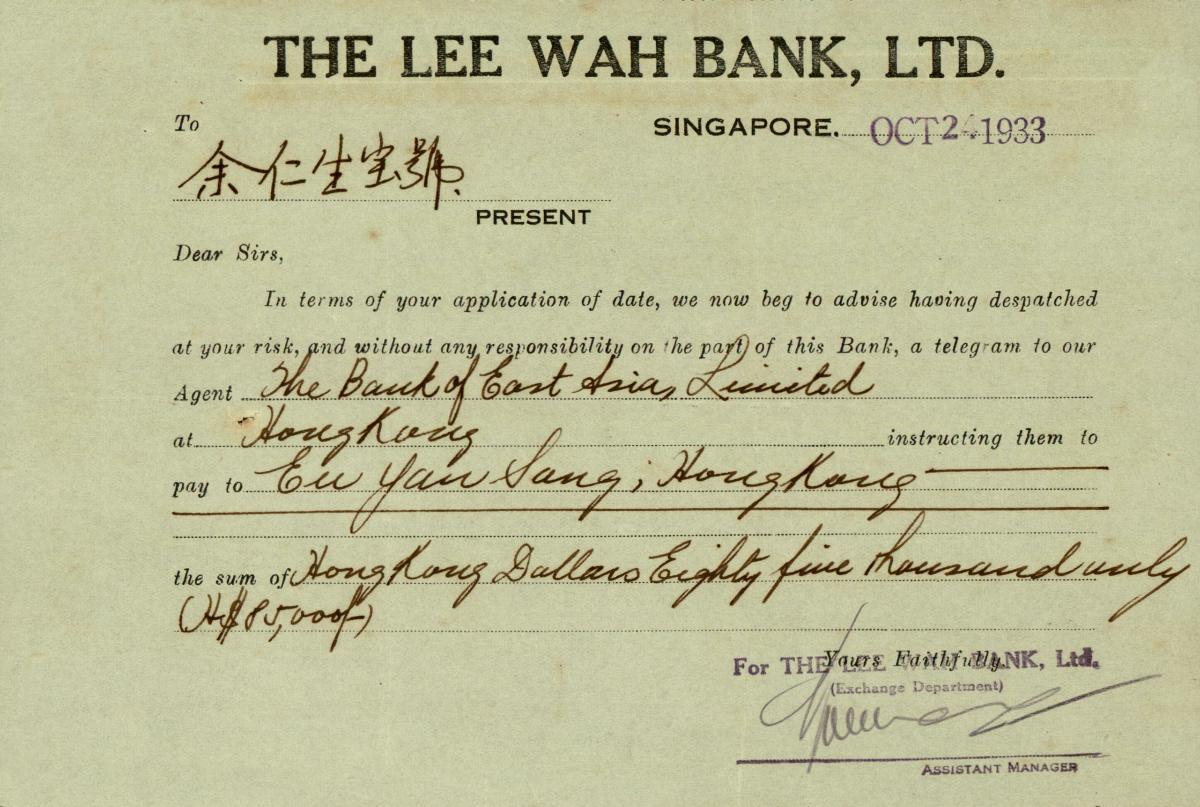 THE LEE WAH BANK, LTD.
To
SINGAPORE. OCT 24 1933
余仁生宝號
PRESENT
Dear Sirs,
In terms of your application of date, we now beg to advise having despatched
at your risk, and without any responsibility on the part of this Bank, a telegram to our
Agent The Bank of East Asia, Limited
at HongKong instructing them to
pay to Eu Yan Sang, HongKong
the sum of HongKong Dollars Eighty five thousand only
(H$85,000/-)
Yours Faithfully.
For THE LEE WAH BANK, Ltd.
(Exchange Department)
ASSISTANT MANAGER